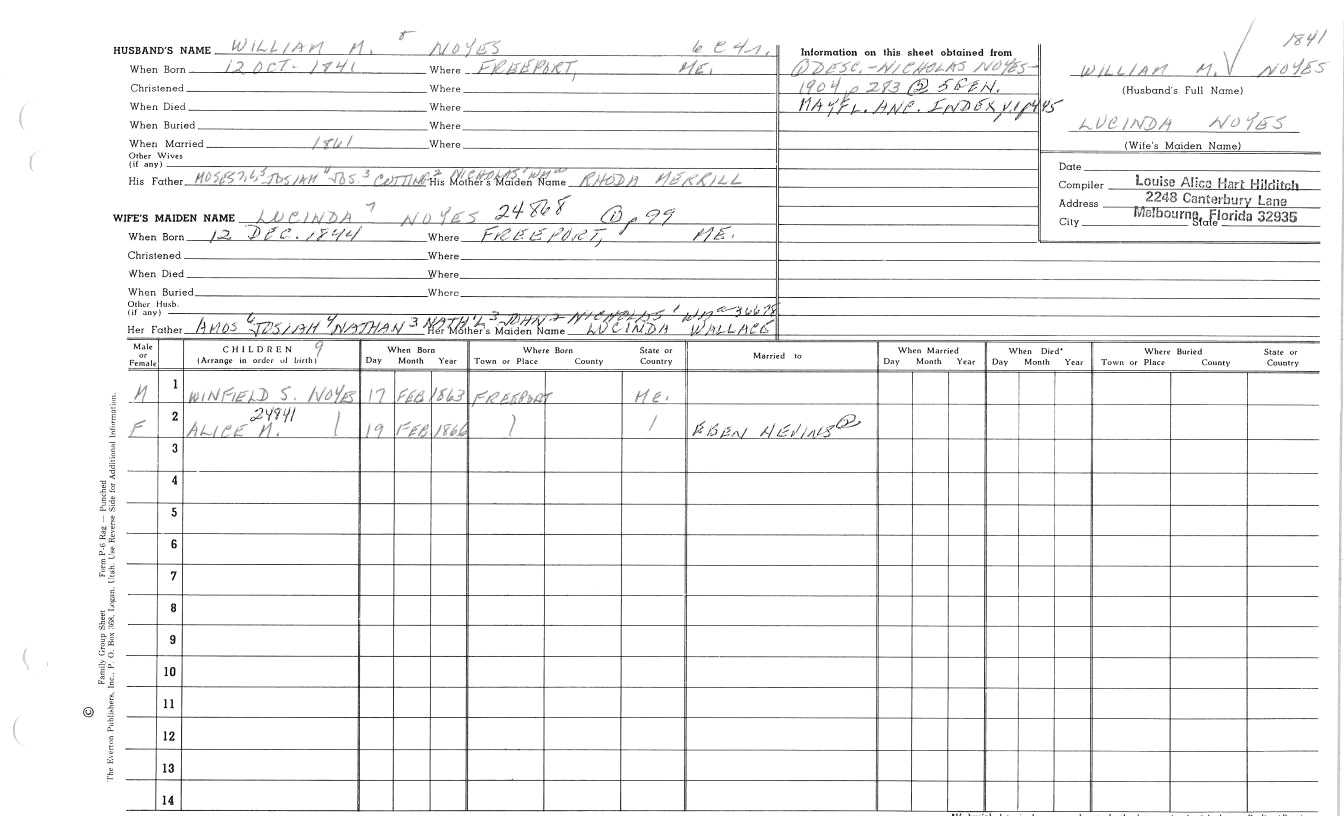 HUSBAND'S NAME WILLIAM M. 8 NOYES
When Born 12 OCT. 1841 Where FREEPORT, ME.
Christened Where
When Died Where
When Buried Where
When Married 1861 Where
Other Wives
(if any)
His Father MOSES 7,6,5 JOSIAH 4 JOS. 3 CUTTING 2 NICHOLAS His Mother's Maiden Name RHODA MERRILL
WIFE'S MAIDEN NAME LUCINDA 7 NOYES 24868 ① p 99
When Born 12 DEC. 1844 Where FREEPORT, ME.
Christened Where
When Died Where
When Buried Where
Other Husb.
(if any)
Her Father AMOS 6 JOSIAH 4 NATHAN 3 NATH'L 3 JOHN 2 NICHOLAS 1 36678 Her Mother's Maiden Name LUCINDA WALLACE
Information on this sheet obtained from
① DESC. - NICHOLAS NOYES -
1904 p 283 ② 5 GEN.
MAYFL. ANC. INDEX V.1 p 445
1841
WILLIAM M. √ NOYES
(Husband's Full Name)
LUCINDA NOYES
(Wife's Maiden Name)
Date
Compiler Louise Alice Hart Hilditch
Address 2248 Canterbury Lane
City Melbourne, Florida 32935 State
Male or Female CHILDREN 9 (Arrange in order of birth) When Born Day Month Year Where Born Town or Place County State or Country Married to When Married Day Month Year When Died* Day Month Year Where Buried Town or Place County State or Country
M 1 WINFIELD S. NOYES 17 FEB 1863 FREEPORT Me.
24841
F 2 ALICE M. 19 FEB 1866 EBEN NEVINS ②
3
4
5
6
7
8
9
10
11
12
13
14
© Family Group Sheet Form P-6 Rag — Punched
The Everton Publishers, Inc., P. O. Box 368, Logan, Utah. Use Reverse Side for Additional Information.